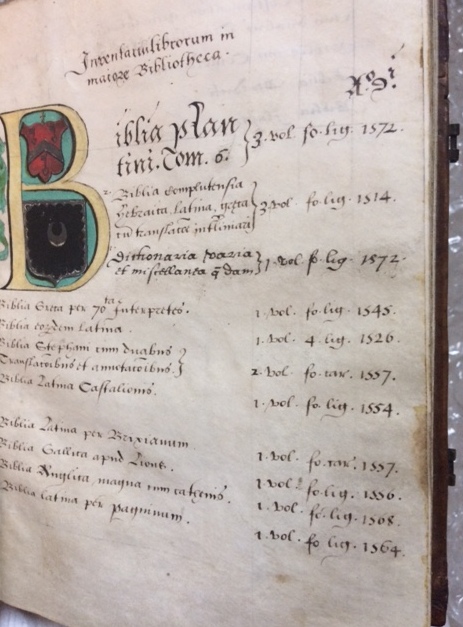 Inventariu librorum in
maiore Bibliotheca.
Biblia Plan
tini. Tom. 6. } 3. vol fo. lig. 1572.
Biblia Complutensia
Hebraica, Latina, græca } 3. vol. fo lig. 1514.
cu translatōe
Dictionaria varia
et miscellanea q̄dam } 1. vol. fo. lig. 1572.
Biblia Græca per 70ta Interpretes. 1. vol. fo lig. 1545.
Biblia eordem Latina. 1. vol. 4. lig. 1526.
Biblia Stephani cum duabus
Translatoibus et annotatoibus } 2. vol. fo. car. 1557.
Biblia Latina Castalionis. 1. vol. fo lig. 1554.
Biblia Latina per Brixianum 1. vol. fo. car. 1557.
Biblia Gallica apud 1. vol. fo lig. 1556.
Biblia Anglica, magna cum 1. vol. fo. lig. 1568.
Biblia Latina per Pagninum. 1. vol. fo lig. 1564.